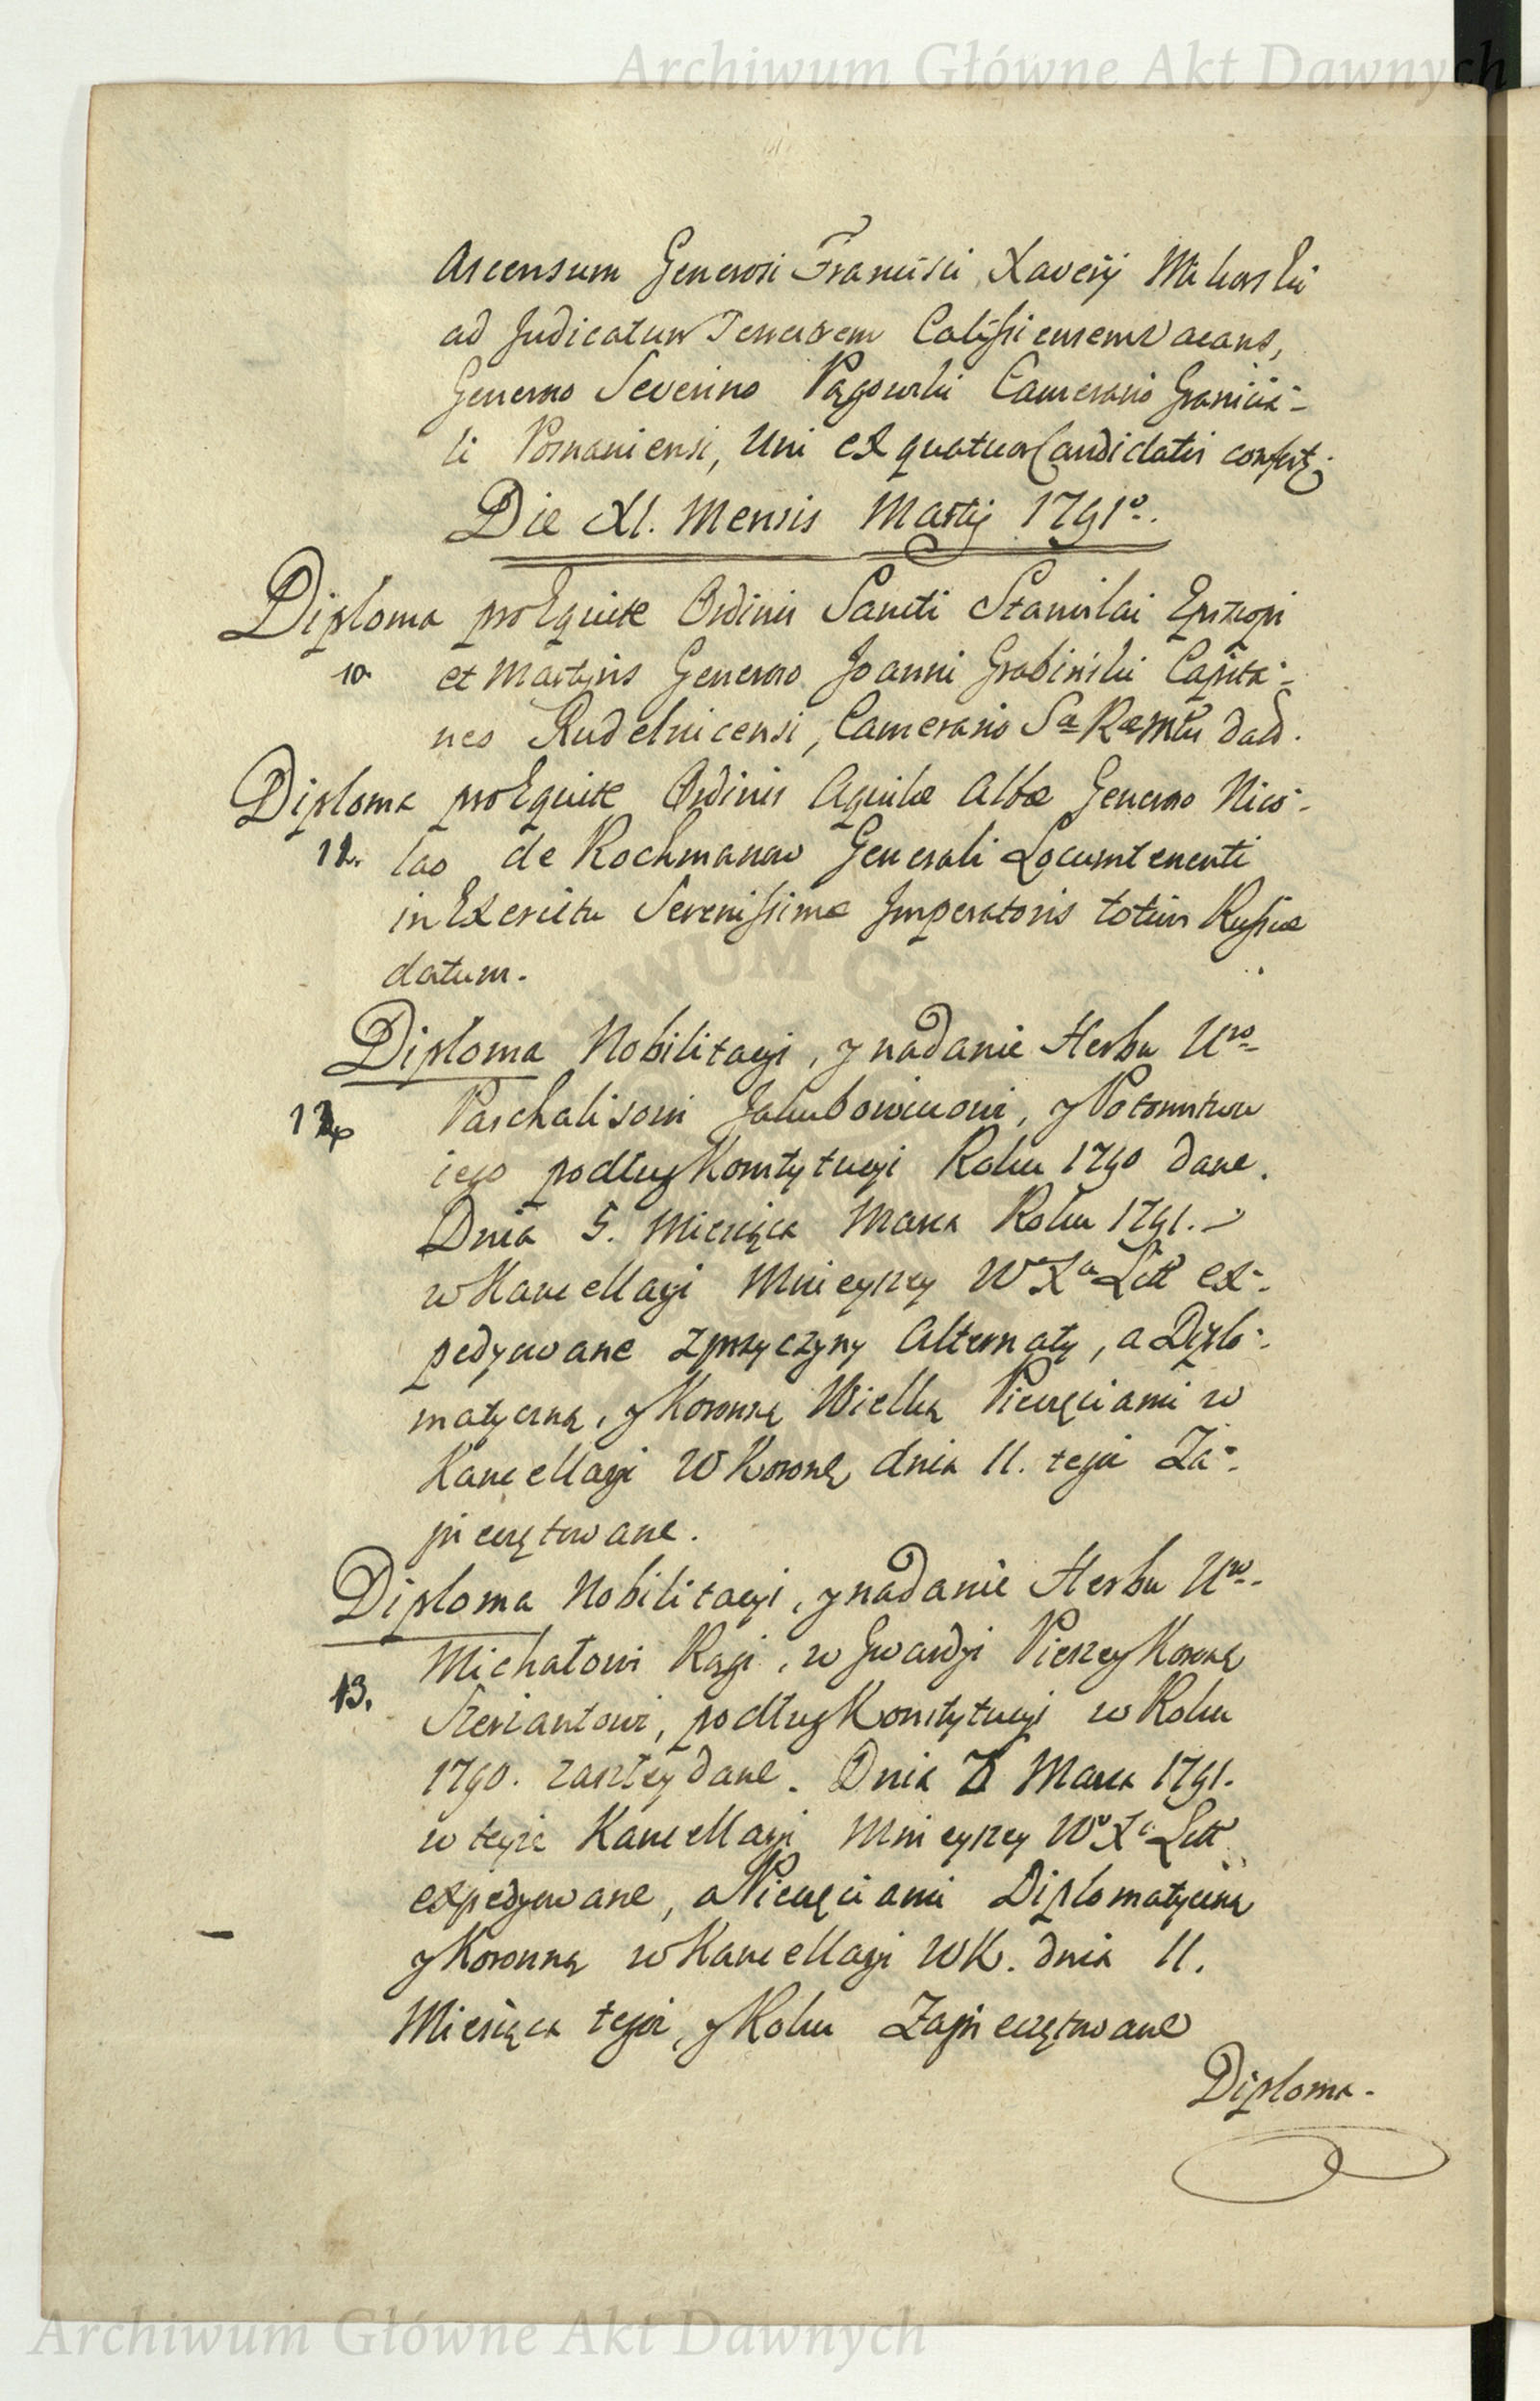 Archiwum Główne Akt Dawnych
Ascensum Generosi Francisci Xaverij Mikorski
ad Judicatum Terrestrem Calissiensem vacans,
Generoso Severino Pągowski Camerario Granicia=
li Posnaniensi, Uni ex quatuor Candidatis confert:
Die XI. Mensis Martij 1791º.
Diploma pro Equite Ordinis Sancti Stanislai Episcopi
10. et Martyris Generoso Joanni Grabiński Capita=
neo Rudelnicensi, Camerario Sæ Ræ Mtis dato.
Diploma pro Equite Ordinis Aquilæ Albæ Generoso Nico=
12. lao de Rochmanow Generali Locumtenenti
in Exercitu Serenissimæ Imperatoris totius Russiæ
datum.
Diploma Nobilitacyi, y nadanie Herbu Uro=
12. Paschalisowi Jakubowiczowi, y Potomstwu
iego podług Konstytucyi Roku 1790 dane.
Dnia 5. Miesiąca Marca Roku 1791.
w Kancellaryi Mnieyszey Wº Xa Litt ex=
pedyowane z przyczyny Alternaty, a Diplo=
matyczną, y Koronną Wielką Pieczęciami w
Kancellaryi W Koronney dnia 11. tegoż Za=
pieczętowane.
Diploma Nobilitacyi, y nadanie Herbu Uro=
Michałowi Rayi, w Gwardyi Pieszey Koronney
13. Szerzantowi, podług Konstytucyi w Roku
1790. zaszłey dane. Dnia 7 Marca 1791.
w teyże Kancellaryi Mnieyszey Wº Xa Litt
expedyowane, a Pieczęciami Diplomatyczną
y Koronną w Kancellaryi WK. dnia 11.
Miesiąca tegoż, y Roku Zapieczętowane
Diploma.
Archiwum Główne Akt Dawnych